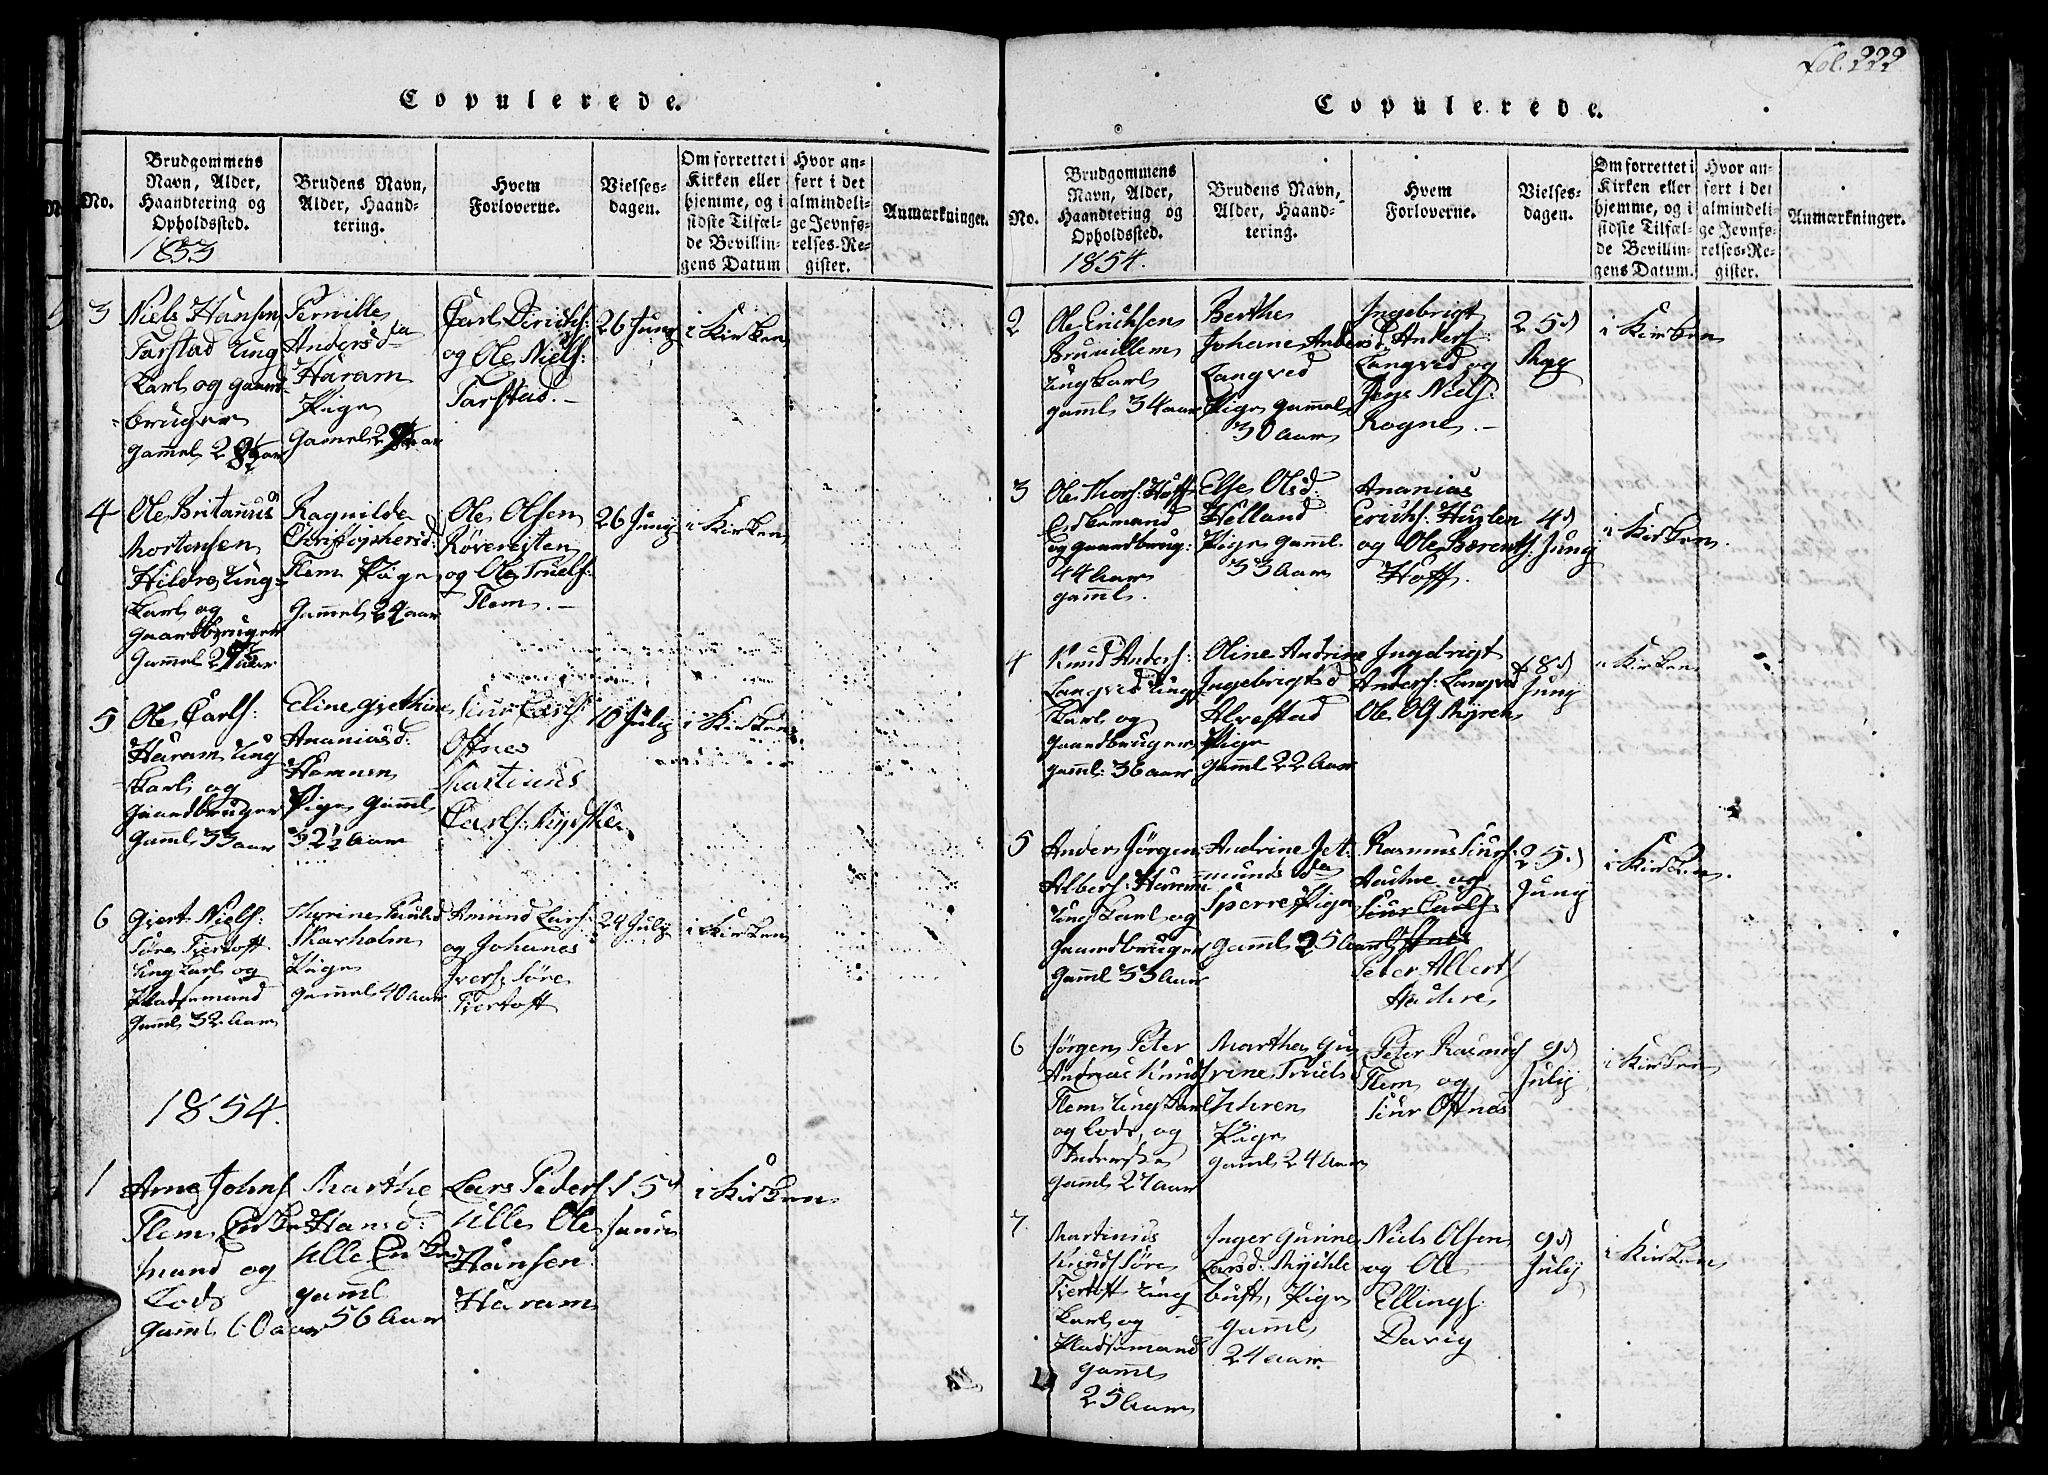 fol. 222
Copulerede.
No.
Brudgommens
Navn, Alder,
Haandtering og
Opholdssted.
1853
Brudens Navn,
Alder, Haand-
tering.
Hvem
Forloverne.
Vielses-
dagen.
Om forrettet i
Kirken eller
hjemme, og i
sidste Tilfæl-
de Bevillin-
gens Datum
Hvor an-
ført i det
almindeli-
ge Jevnfø-
relses-Re-
gister.
Anmærkninger.
3
Niels Hansen
Tarstad Ung
Karl og gaard
bruger
gammel
Pernille
Andersda
Haram
Pige
Gamel
Carl Dirichs:
og Ole Niels:
Tarstad.
26 Juny
i Kirken
4
Ole Britanus
Mortensen
Hildre Ung-
karl og
gaardbruger
Gammel
Ragnilde
Christophersd
Flem Pige
Gammel 29 aar
Ole Olsen
Røvereiten
og Ole Truels:
Flem.
26 Juny
i Kirken
5
Ole Carls:
Haram Ung
karl og
gaardbruger
Gaml 33 aar
Eline Grethine
Ananiasd:
Hamnen
Pige gaml
32½ Aar
Siur Carls
Ofnes
Martinus
Carls:
10 July
i Kirken
6
Giert Niels:
Søre Fiertoft
Ung karl og
Pladsemand
Gaml 32 Aar
Skarholm
Pige
gammel 40 aar
Amund Lars:
og Johanes
Ivers: Søre
Fiertoft
24 July
i Kirken
1854.
1
Arne Johns
Flem Enke
mand og
Lods
gaml 60 aar
Marthe
Hansd:
Ulle Enke
gaml
56 Aar
Lars Peders
Ulle Ole
Hansen
Haram
15d
i Kirken
Copulerede.
No.
Brudgommens
Navn, Alder,
Haandtering og
Opholdssted.
1854.
Brudens Navn,
Alder, Haand-
tering.
Hvem
Forloverne.
Vielses-
dagen.
Om forrettet i
Kirken eller
hjemme, og i
sidste Tilfæl-
de Bevillin-
gens Datum.
Hvor an-
ført i det
almindeli-
ge Jevnfø-
relses-Re-
gister.
Anmærkninger.
2
Ole Erichsen
Bruvillem
Ungkarl
gaml 34 aar
Berthe
Johane Andersd
Langved
Pige gammel
30 Aar
Ingebrigt
Anders:
Langved og
Jens Niels:
Rogne.
25d
May
i Kirken
3
Ole Thors: Hoff
Enkemand
og gaardbrug:
44 Aar
gaml.
Else Olsd:
Helland
Pige gaml
33 Aar
Ananias
Erichs:
og Ole Bærents:
Hoff.
4d
Juny
i Kirken.
4
Knud Anders:
Langved Ung
karl og
gaardbruger
gaml: 36 aar
Oline Andrine
Ingebrigtsd
Alvestad
Pige
gaml 22 Aar
Ingebrigt
Anders: Langved
Ole Ols Myren
18d
Juny
i Kirken
5
Anders Jørgen
Alberts: Haram
Ung karl og
gaardbruger
Gaml 33 Aar
Andrine Jet-
mundsda
Sperre Pige
gaml 25 Aar
Rasmus Siurs:
Hachre og
Siur Carls
Ofnes
Peter Alberts
Hachre
25d
Juny
i Kirken.
6
Jørgen Peter
Andreas Knuds
Flem Ung karl
og Lods, og
gaml 27 aar
Marthe Gu
rine Truels
Uhren
Pige
gaml 24 Aar
Peter Rasmus
Flem og
Siur Ofnes
9d
July
i Kirken
7
Martinus
Knuds Søre
Fiertoft Ung
karl og
Pladsemand
gaml
25 Aar
Inger Gurine
Larsd: Mychle
bust, Pige
gaml
24 aar
Niels Olsen
og Ole
Ellings:
Davig
9d
July
i Kirken